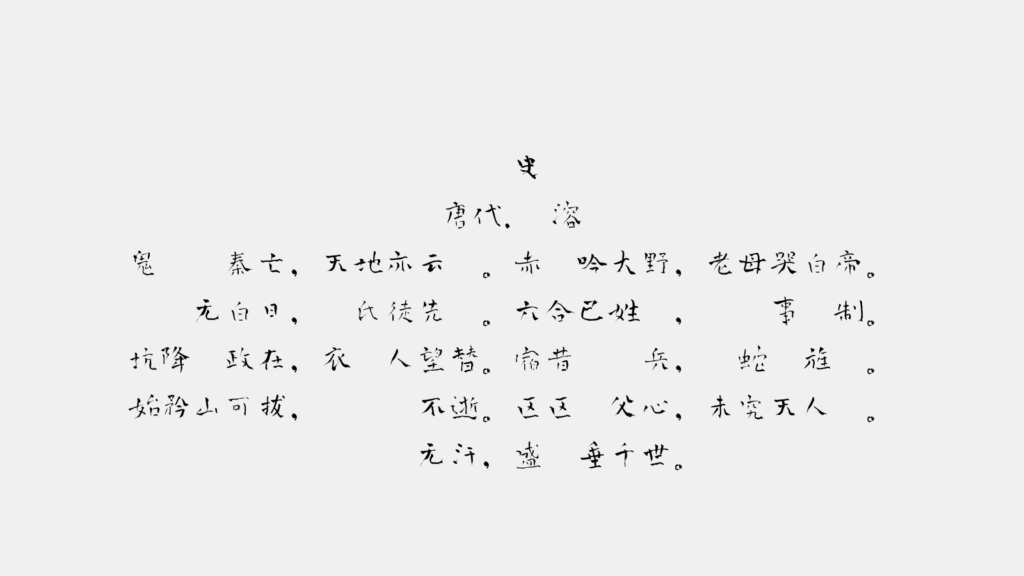 史
唐代. 溶
鬼 秦亡，天地亦云 。赤 吟大野，老母哭白帝。
无白日， 氏徒先 。六合已姓 ， 事 制。
坑降 政在，衣 人望替。宿昔 兵， 蛇 旌 。
始矜山可拔， 不逝。区区 父心，未究天人 。
无汗，盛 垂千世。